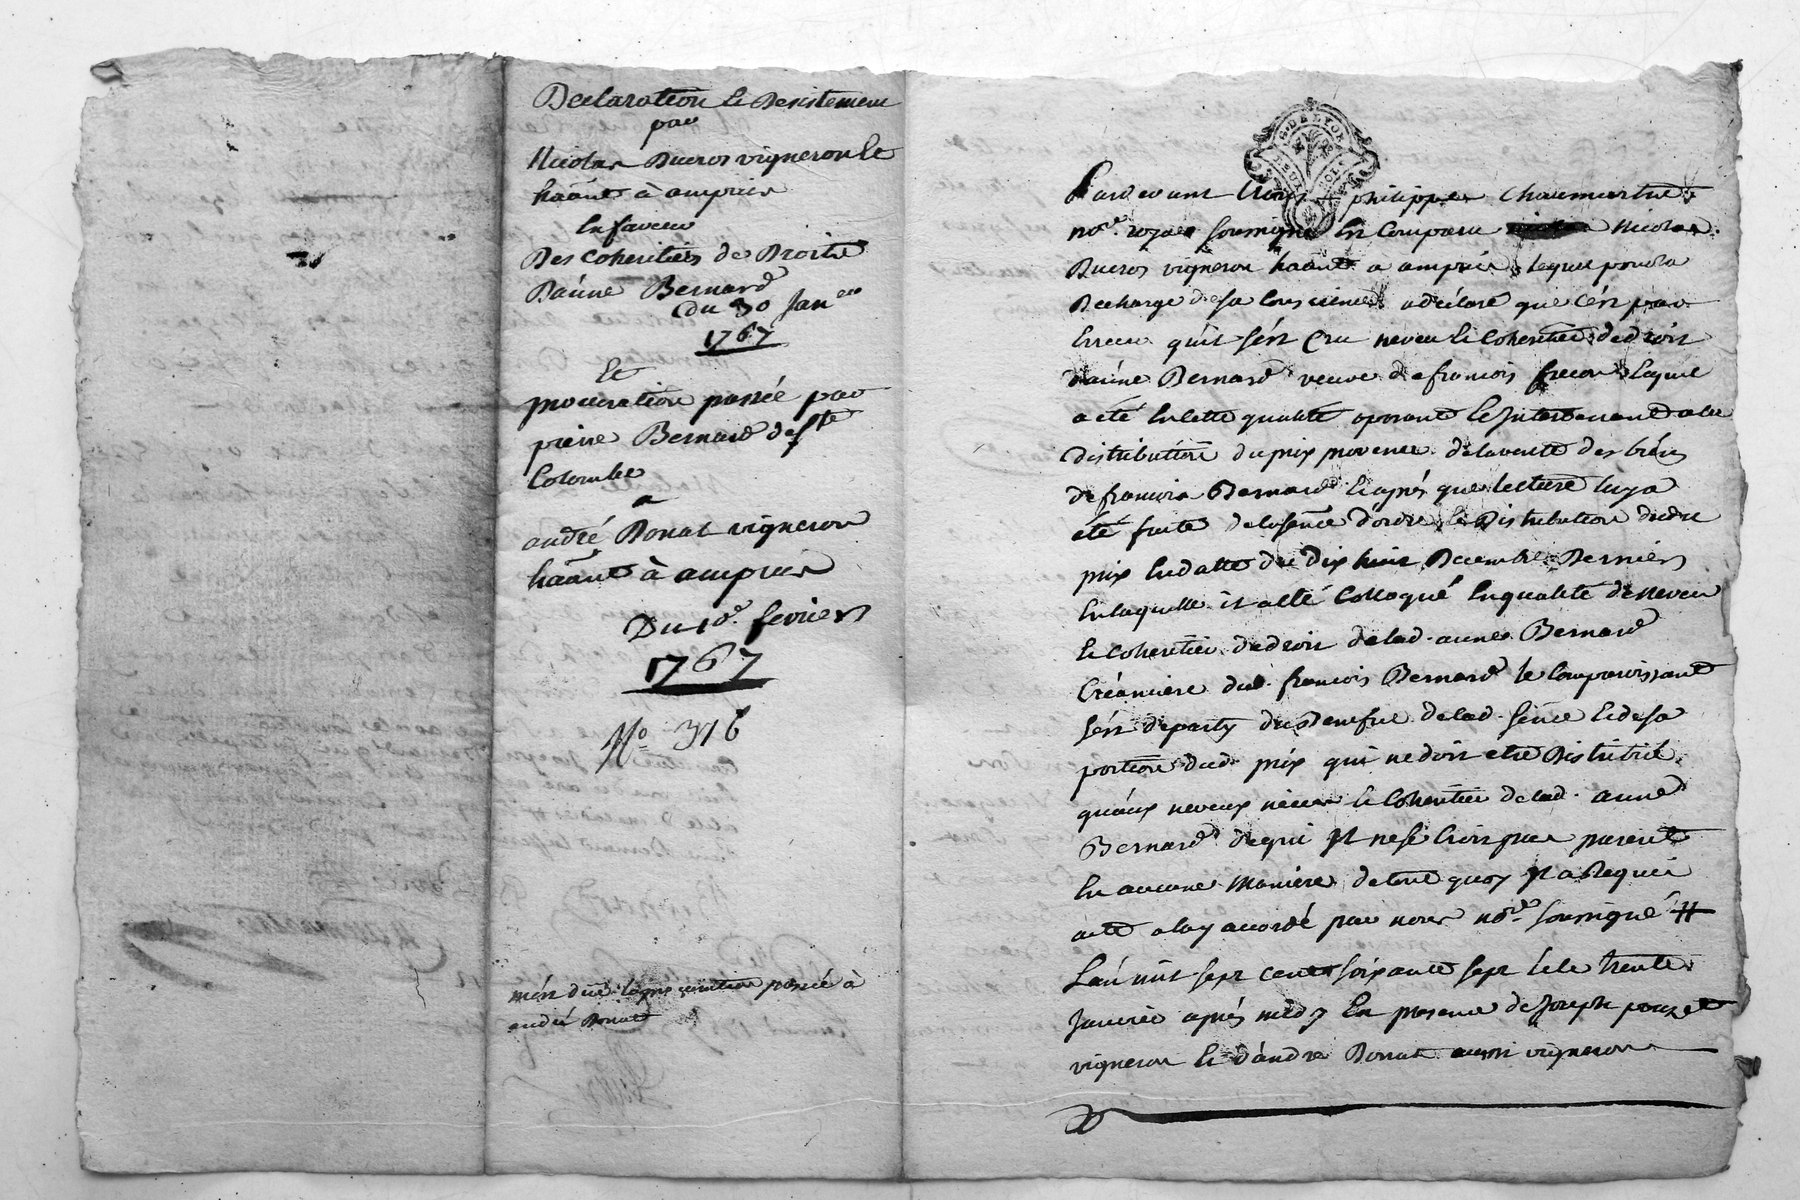 Declaration le Desistement
par
Nicolas Ducros vigneron le
haant à ampuis
En faveur
Des coheritiers de Droits
D'anne Bernard
du 30 Janer
1767
Et
procuration passée par
pierre Bernard de Ste
Colombe
a
andré Donat vigneron
haant à ampuis
Du 10e fevrier
1767
No 376
andré Donat
G. DE LYON
Pardevant philippe Chaumartin
nore royal soussigné En Comparu Nicolas
Ducros vigneron haant a ampuis lequel pour la
Decharge de sa Conscience a déclaré que c'est par
Erreur qu'il s'est Cru neveu le Coheritier de droit
d'anne Bernard veuve de francois lequel
a été En cette qualité oposant le Intervenant a la
distribution du prix provenu de la vente des biens
de francois Bernard le après que lecture luy a
été faite de la sence d'ordre le Distribution dudit
prix En datte du dix huit Decembre Dernier
En laquelle il a eté Colloqué En qualité de neveu
le coheritier de droit de lad. anne Bernard
Créanciere dud. francois Bernard le Comparoissant
s'est departy du Benefice de lad. sence le de sa
portion dud. prix qui ne doit etre Distribué
qu'aux neveux nieces le Coheritier de lad. anne
Bernard de qui Il ne se Croit pas parent
En aucune maniere de tout quoy Il a Requis
acte a luy accordé par nous nore soussigné
L'an mil sept cent soixante sept le le trente
Janvier après midy En presence de Joseph pouzet
vigneron le d'andré Donat aussi vigneron